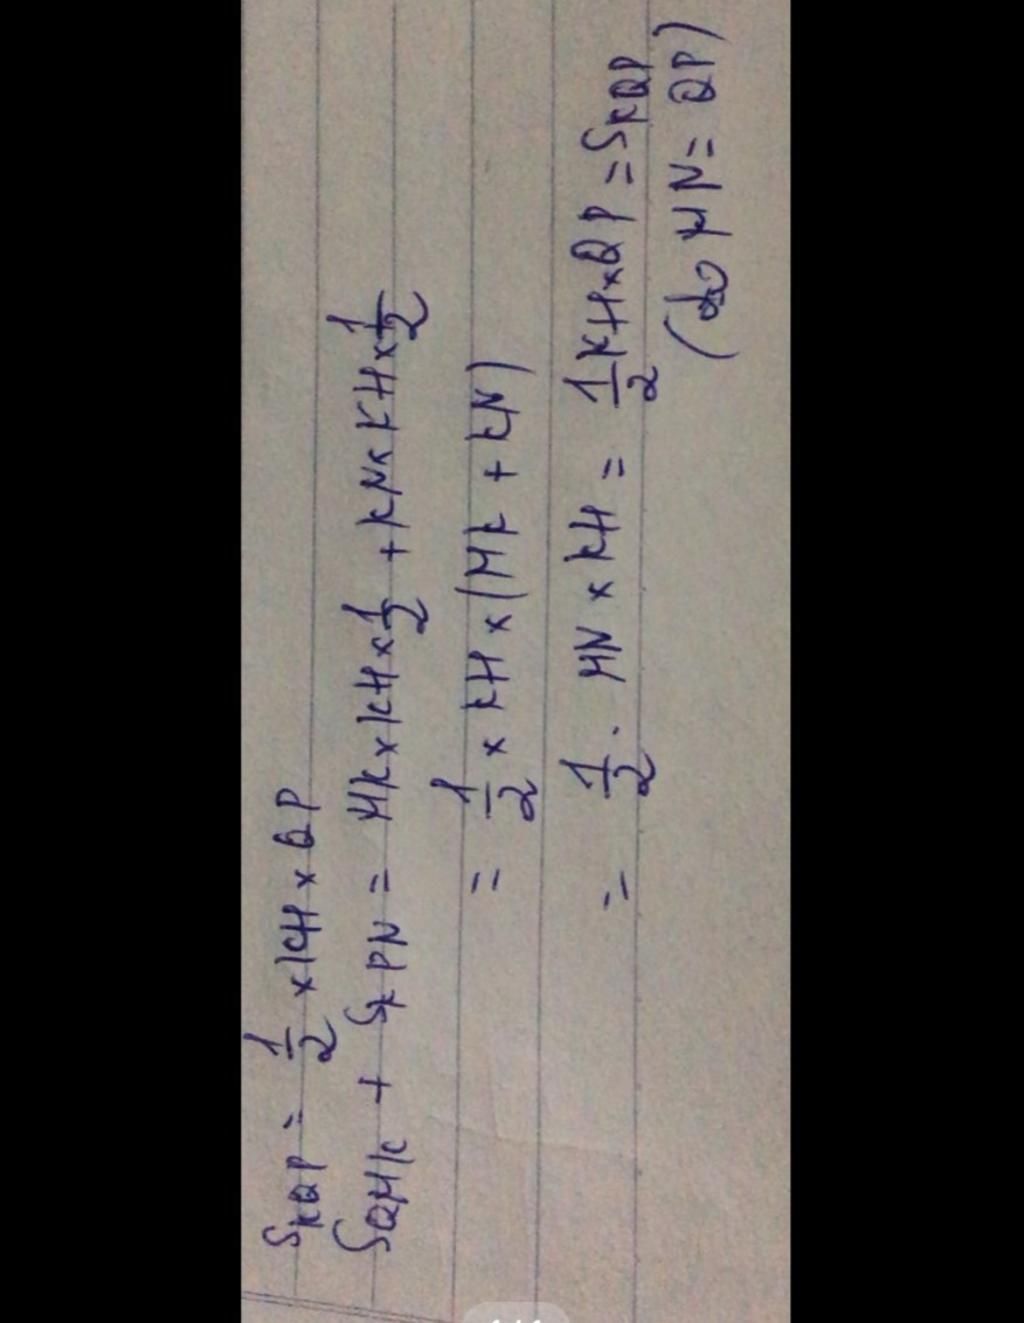 S_KQP = 1/2 × KH × QP
S_QMK + S_KPN = MK × KH × 1/2 + KN × KH × 1/2
= 1/2 × KH × (MK + KN)
= 1/2 . MN × KH = 1/2 KH × QP = S_KQP
(do MN = QP)